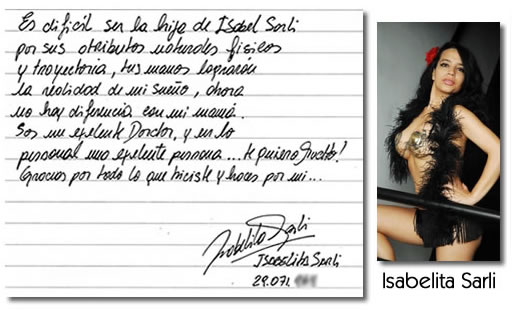 Es dificil ser la hija de ISabel Sarli
por sus atributos naturales fisicos
y trayectoria, tus manos lograron
la realidad de mi sueño, ahora
no hay diferencia con mi mamá.
Sos un exelente Doctor, y en lo
personal una exelente persona... te quiero
Gracias por todo lo que hiciste y haces por mi...
Isabelita Sarli
Isabelita Sarli
29.071
Isabelita Sarli